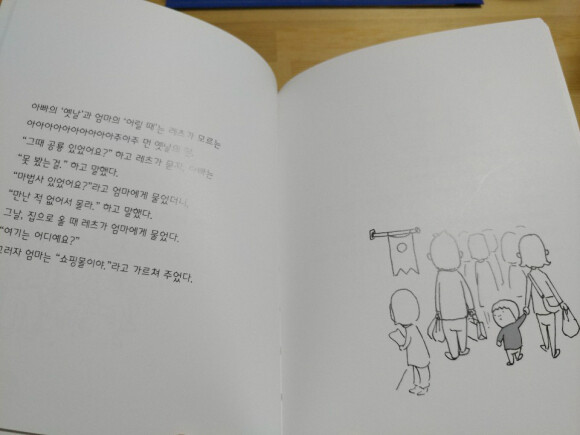 아빠의 '옛날'과 엄마의 '어릴 때'는 레츠가 모르는
아아아아아아아아아아주아주 먼 옛날의
"그때 공룡 있었어요?" 하고 레츠가
"못 봤는걸." 하고 말했다.
"마법사 있었어요?"라고 엄마에게 물었더니,
"만난 적 없어서 몰라." 하고 말했다.
그날, 집으로 올 때 레츠가 엄마에게 물었다.
"여기는 어디예요?"
그러자 엄마는 "쇼핑몰이야."라고 가르쳐 주었다.